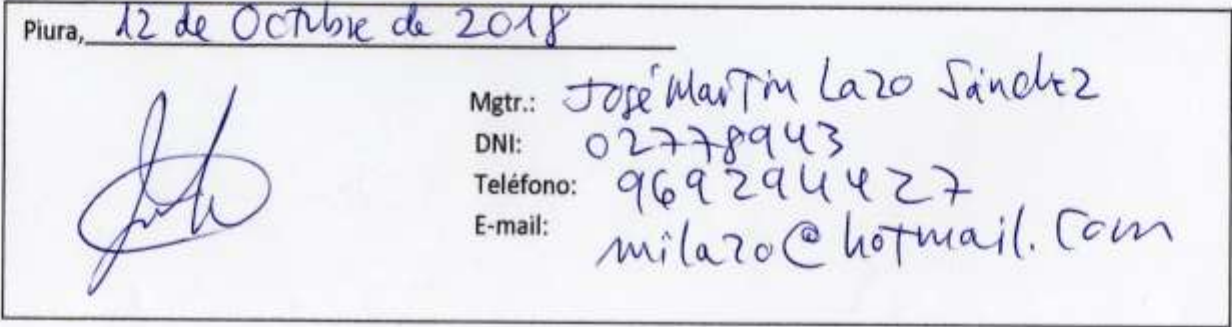 Piura, 12 de Octubre de 2018
Mgtr.: José Martín Lazo Sánchez
DNI: 02778943
Teléfono: 969294427
E-mail: milazo@hotmail.com